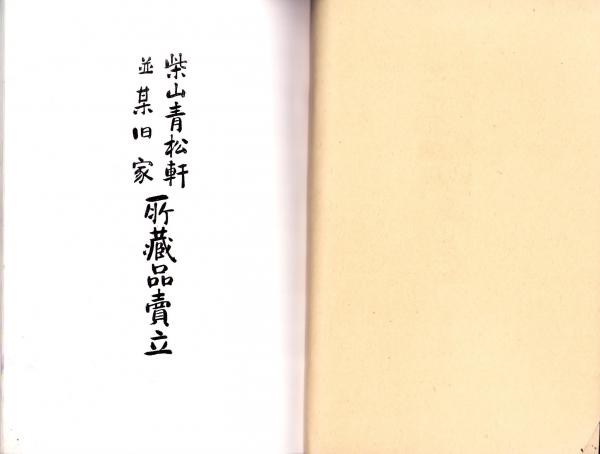 柴山青松軒
並某旧家
所藏品賣立